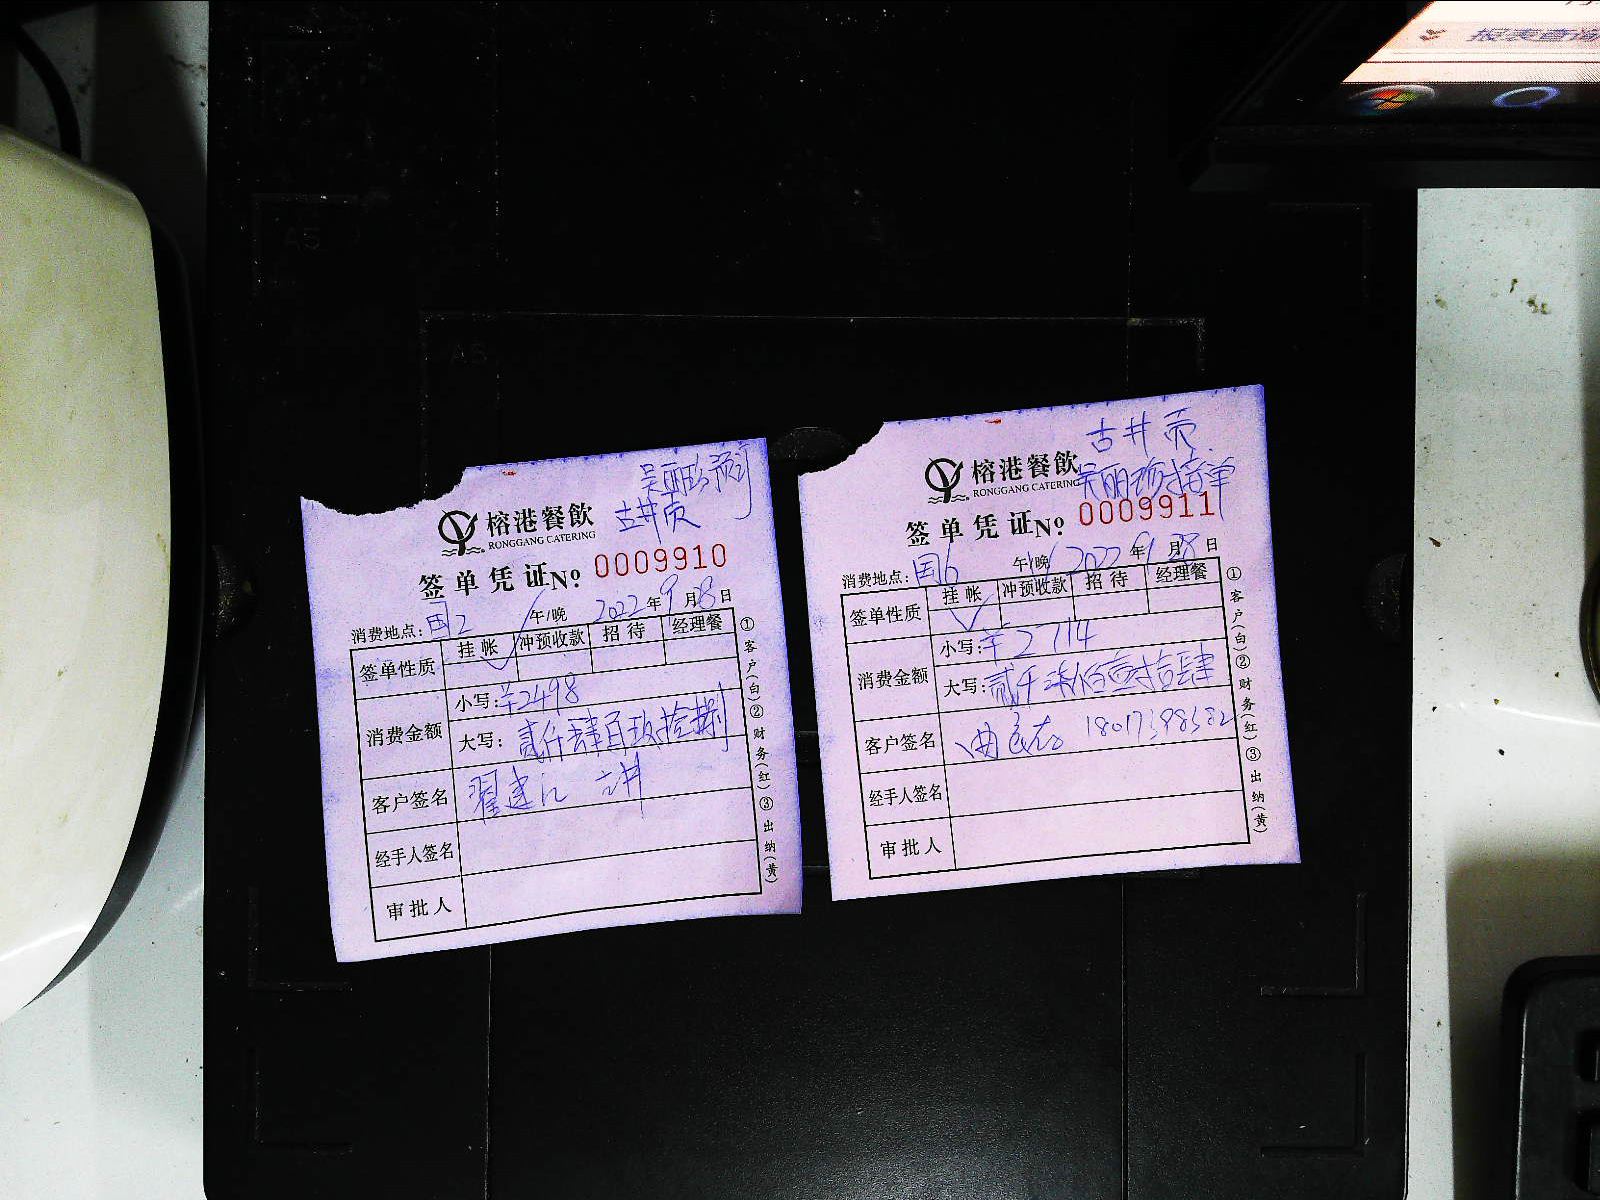 报表查询
A5
A5
吴丽珍
古井贡
榕港餐飲
RONGGANG CATERING
签单凭证No 0009910
消费地点：国2 午/晚 2022年9月28日
签单性质 挂帐 冲预收款 招待 经理餐
消费金额 小写：¥2498
大写：贰仟肆百玖拾捌
客户签名 翟建江 古井
经手人签名
审批人
①客户(白)②财务(红)③出纳(黄)
古井贡
榕港餐飲
RONGGANG CATERING
吴丽珍接单
签单凭证No 0009911
消费地点：国6 午/晚 2022年9月28日
签单性质 挂帐 冲预收款 招待 经理餐
消费金额 小写：¥2714
大写：贰仟柒佰壹拾肆
客户签名 18017398382
经手人签名
审批人
①客户(白)②财务(红)③出纳(黄)